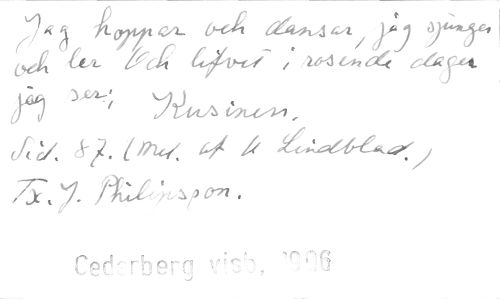 Jag hoppar och dansar, jag sjunger
och ler Och lifvet i rosende dager
jag ser; Kusinen.
Sid. 87. (Mel. af U Lindblad.)
Tx. J. Philipsson.
Cederberg visb, 1906